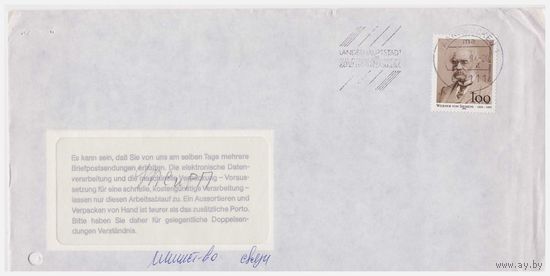 LANDESHAUPTSTADT
100
WERNER VON SIEMENS
Es kann sein, daß Sie von uns am selben Tage mehrere
Briefpostsendungen erhalten. Die elektronische Daten-
verarbeitung und der maschinelle Verpackung – Voraus-
setzung für eine schnelle, kostengünstige Verarbeitung –
lassen nur diesen Arbeitsablauf zu. Ein Aussortieren und
Verpacken von Hand ist teurer als das zusätzliche Porto.
Bitte haben Sie daher für gelegentliche Doppelsen-
dungen Verständnis.
www.ay.by